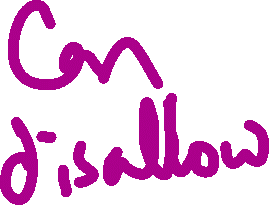 Can
disallow